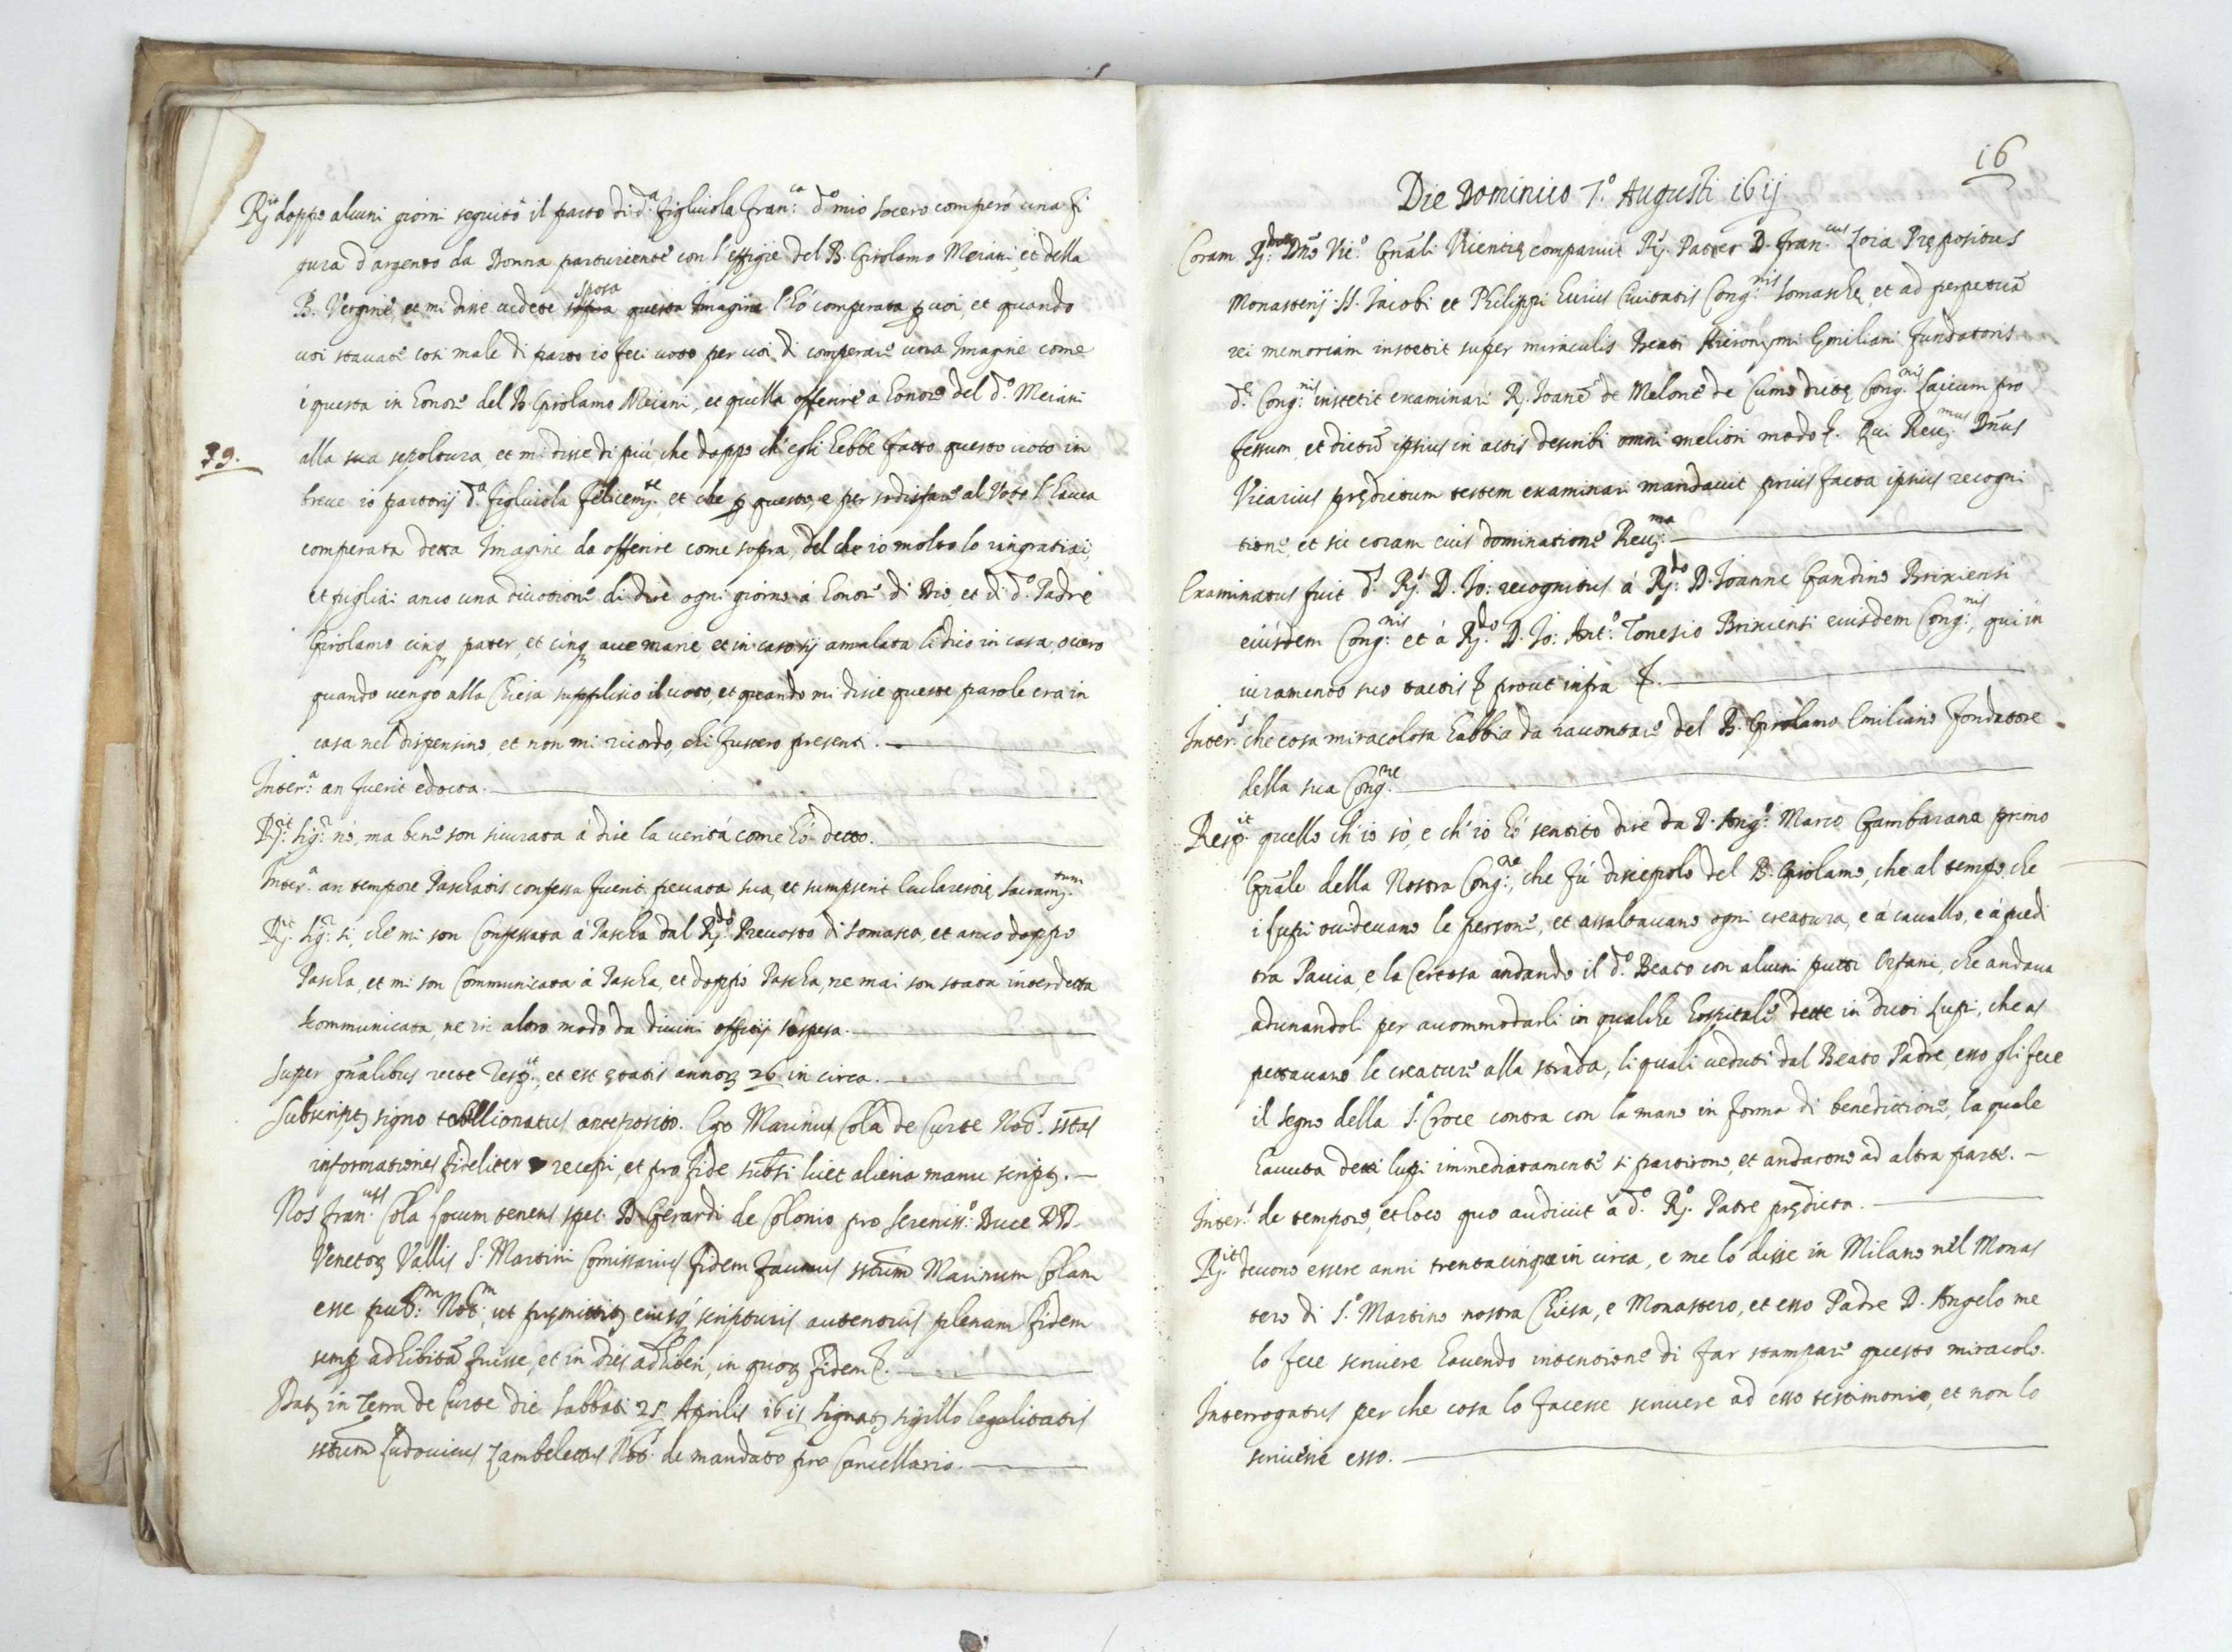 Rt doppo alcuni giorni seguito il parto di d.a figliuola fran.ca d.o mio socero comperò una fi
gura d'argento da Donna parturiente con l'effigie del B. Girolamo Meiani, et della
B. Vergine, et mi disse vedete sposa questa Imagine l'hó comperata p voi, et quando
voi stavate cosi male di parto io feci voto per voi di comperare una Imagine come
è questa in honore del B. Girolamo Meiani, et quella offerire a honore del d.o Meiani
39.
alla sua sepoltura, et mi disse di piú, che doppo ch'egli hebbe fatto questo voto in
breve io partorij d.a figliuola felicem.te et che p questo, e per sodisfare al Voto l'haveva
comperata detta Imagine da offerire come sopra, del che io molto lo ringratiai,
et pigliai anco una divotione di dire ogni giorno á honore di Dio, et di d.o Padre
Girolamo cinq pater, et cinq ave marie, et in caso sij amalata li dico in casa, overo
quando vengo alla Chiesa supplisco il voto, et quando mi disse queste parole era in
casa nel dispensino, et non mi ricordo, chi fussero presenti.
Inter.a an fuerit edocta.
Rt. sig.r nó, ma bene son sicurata á dire la veritá come hó detto.
Inter.a an tempore Paschatis confessa fuerit peccata sua, et sumpserit Eucharestię Sacram.tum
Rt. sig.r si, che mi son Confessata á Pascha dal R.do Prevosto di Somasca, et anco doppo
Pascha, et mi son Communicata á Pascha, et doppó Pascha, ne mai son stata interdetta
scommunicata, ne in altro modo da divini officij sospesa.
Super gnālibus recte Resp.it, et est ętatis annoꝝ 26 in circa.
Subscript signo tabellionatus anteposito. Ego Marinus Cola de Curte Not.s sstas
informationes fideliter recepi, et pro fide subsi licet aliena manu script.
Nos Fran.cus Cola locum tenens spec. D. Gerardi de Colonio pro Sereniss.o Duce DD.
Venetoꝝ Vallis S. Martini Comissarius fidem facimus sstum Marinum Colam
esse pub.m Not.m, ut pręmittit, eiusq scripturis autenticis plenam fidem
semp adhibitā fuisse, et in dies adhiberi, in quoꝝ fidem &.
Dat in Terra de Curte die Sabbati 25 Aprilis 1615 Signat sigillo legalitatis
sstum Ludovicus Zambelettus Not.s de mandato pro Cancellario.
16
Die Dominico 7.o Augusti 16ij
Coram R.do Dno Vic.o Gnāli Vicentię comparuit R. Pater D. Fran.cus Zoia Prępositus
Monasterij SS. Iacobi et Philippi huius Civitatis Cong.nis Somaschę, et ad perpetuā
rei memoriam instetit super miraculis Beati Hieronymi Emiliani fundatoris
d. Cong.nis instetit examinari R. Ioanē de Melone de Cumo dictę Cong.nis Laicum pro
fessum, et dictū ipsius in actis describi omni meliori modo &. Qui Rev.mus Dnus
Vicarius prędictum testem examinari mandavit prius facta ipsius recogni
tione, et sic coram eius dominatione Rev.ma
Examinatus fuit d. R. D. Io: recognitus á R.do D. Ioanne Gandino Brixiensi
eiusdem Cong.nis et á R.do D. Io: Ant.o Tonesio Brixiensi eiusdem Cong.nis, qui in
iuramento suo tactis & prout infra &.
Inter.s che cosa miracolosa habbia da raccontare del B. Girolamo Emiliano fondatore
della sua Cong.ne
Resp.it quello ch'io só, e ch'io hó sentito dire da D. Ang.o Marco Gambarana primo
Gnāle della Nostra Cong.ne, che fú discepolo del B. Girolamo, che al tempo che
i lupi occidevano le persone, et assaltavano ogni creatura, e á cavallo, e á piedi
tra Pavia, e la Certosa andando il d.o Beato con alcuni putti Orfani, che andava
adunandoli per accommodarli in qualche hospitale dette in duoi Lupi, che as
pettavano le creature alla strada, li quali veduti dal Beato Padre, esso gli fece
il segno della S. Croce contra con la mano in forma di benedittione, la quale
havuta detti lupi immediatamente si partirono, et andarono ad altra parte.
Inter.s de tempore, et loco quo audivit á d.o R.o Patre prędicta.
R.it devono essere anni trentacinque in circa, e me lo disse in Milano nel Monas
tero di S.o Martino nostra Chiesa, e Monastero, et esso Padre D. Angelo me
lo fece scrivere havendo intentione di far stampare questo miracolo.
Interrogatus per che cosa lo facesse scrivere ad esso testimonio, et non lo
scrivesse esso.